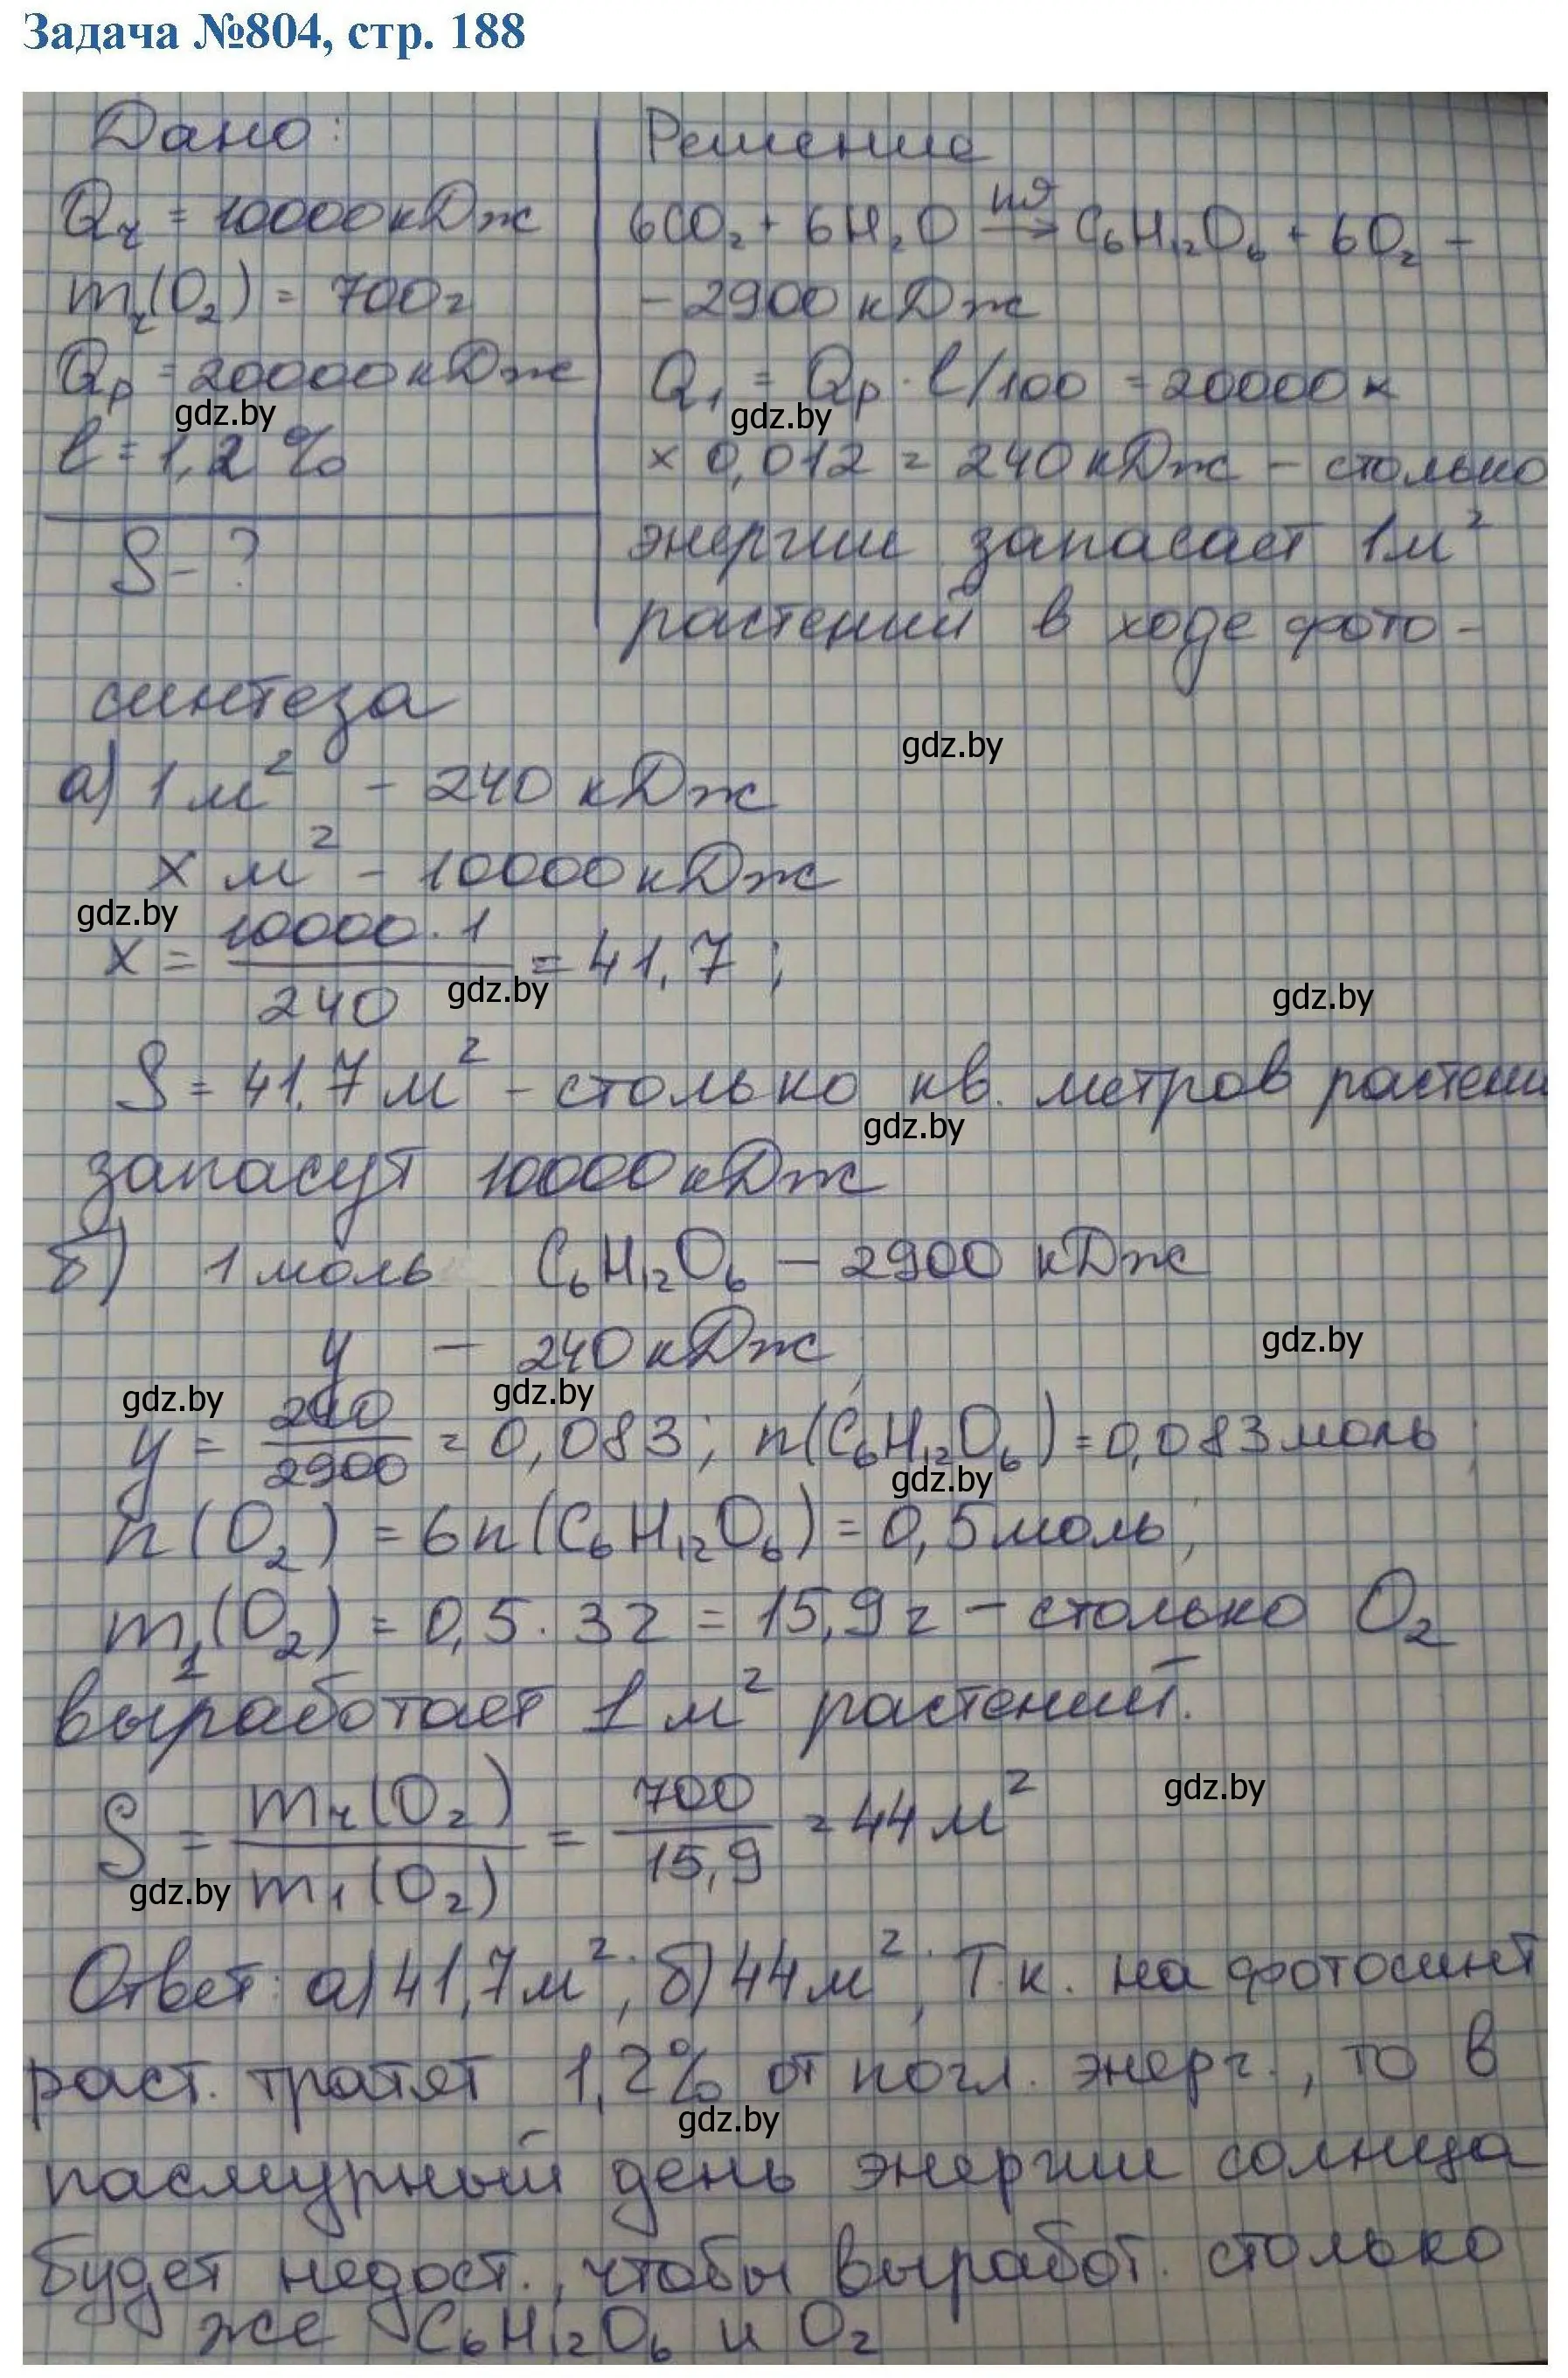 Задача №804, стр. 188
Дано:
Qч = 10000 кДж
mч(O₂) = 700г
Qр = 20000 кДж
gdz.by
ℓ = 1,2 %
S - ?
Решение
6CO₂ + 6H₂O → C₆H₁₂O₆ + 6O₂ –
– 2900 кДж
Q₁ = Qр · ℓ/100 = 20000 ×
gdz.by
× 0,012 = 240 кДж – столько
энергии запасает 1м²
растений в ходе фото-
синтеза
gdz.by
а) 1 м² – 240 кДж
x м² – 10000 кДж
gdz.by
x = 10000 · 1 / 240 = 41,7 ;
gdz.by
gdz.by
S = 41,7 м² – столько кв. метров растени
gdz.by
запасут 10000 кДж
б) 1 моль C₆H₁₂O₆ – 2900 кДж
y – 240 кДж
gdz.by
gdz.by
gdz.by
y = 240 / 2900 = 0,083 ; n(C₆H₁₂O₆) = 0,083 моль ;
gdz.by
n(O₂) = 6n(C₆H₁₂O₆) = 0,5 моль ;
m₁(O₂) = 0,5 · 32 = 15,9 г – столько O₂
выработает 1 м² растений.
gdz.by
S = mч(O₂) / m₁(O₂) = 700 / 15,9 = 44 м²
gdz.by
Ответ: а) 41,7 м² ; б) 44 м² ; Т.к. на фотосинт
раст. тратят 1,2% от погл. энерг., то в
gdz.by
пасмурный день энергии солнца
будет недост., чтобы выработ. столько
же C₆H₁₂O₆ и O₂